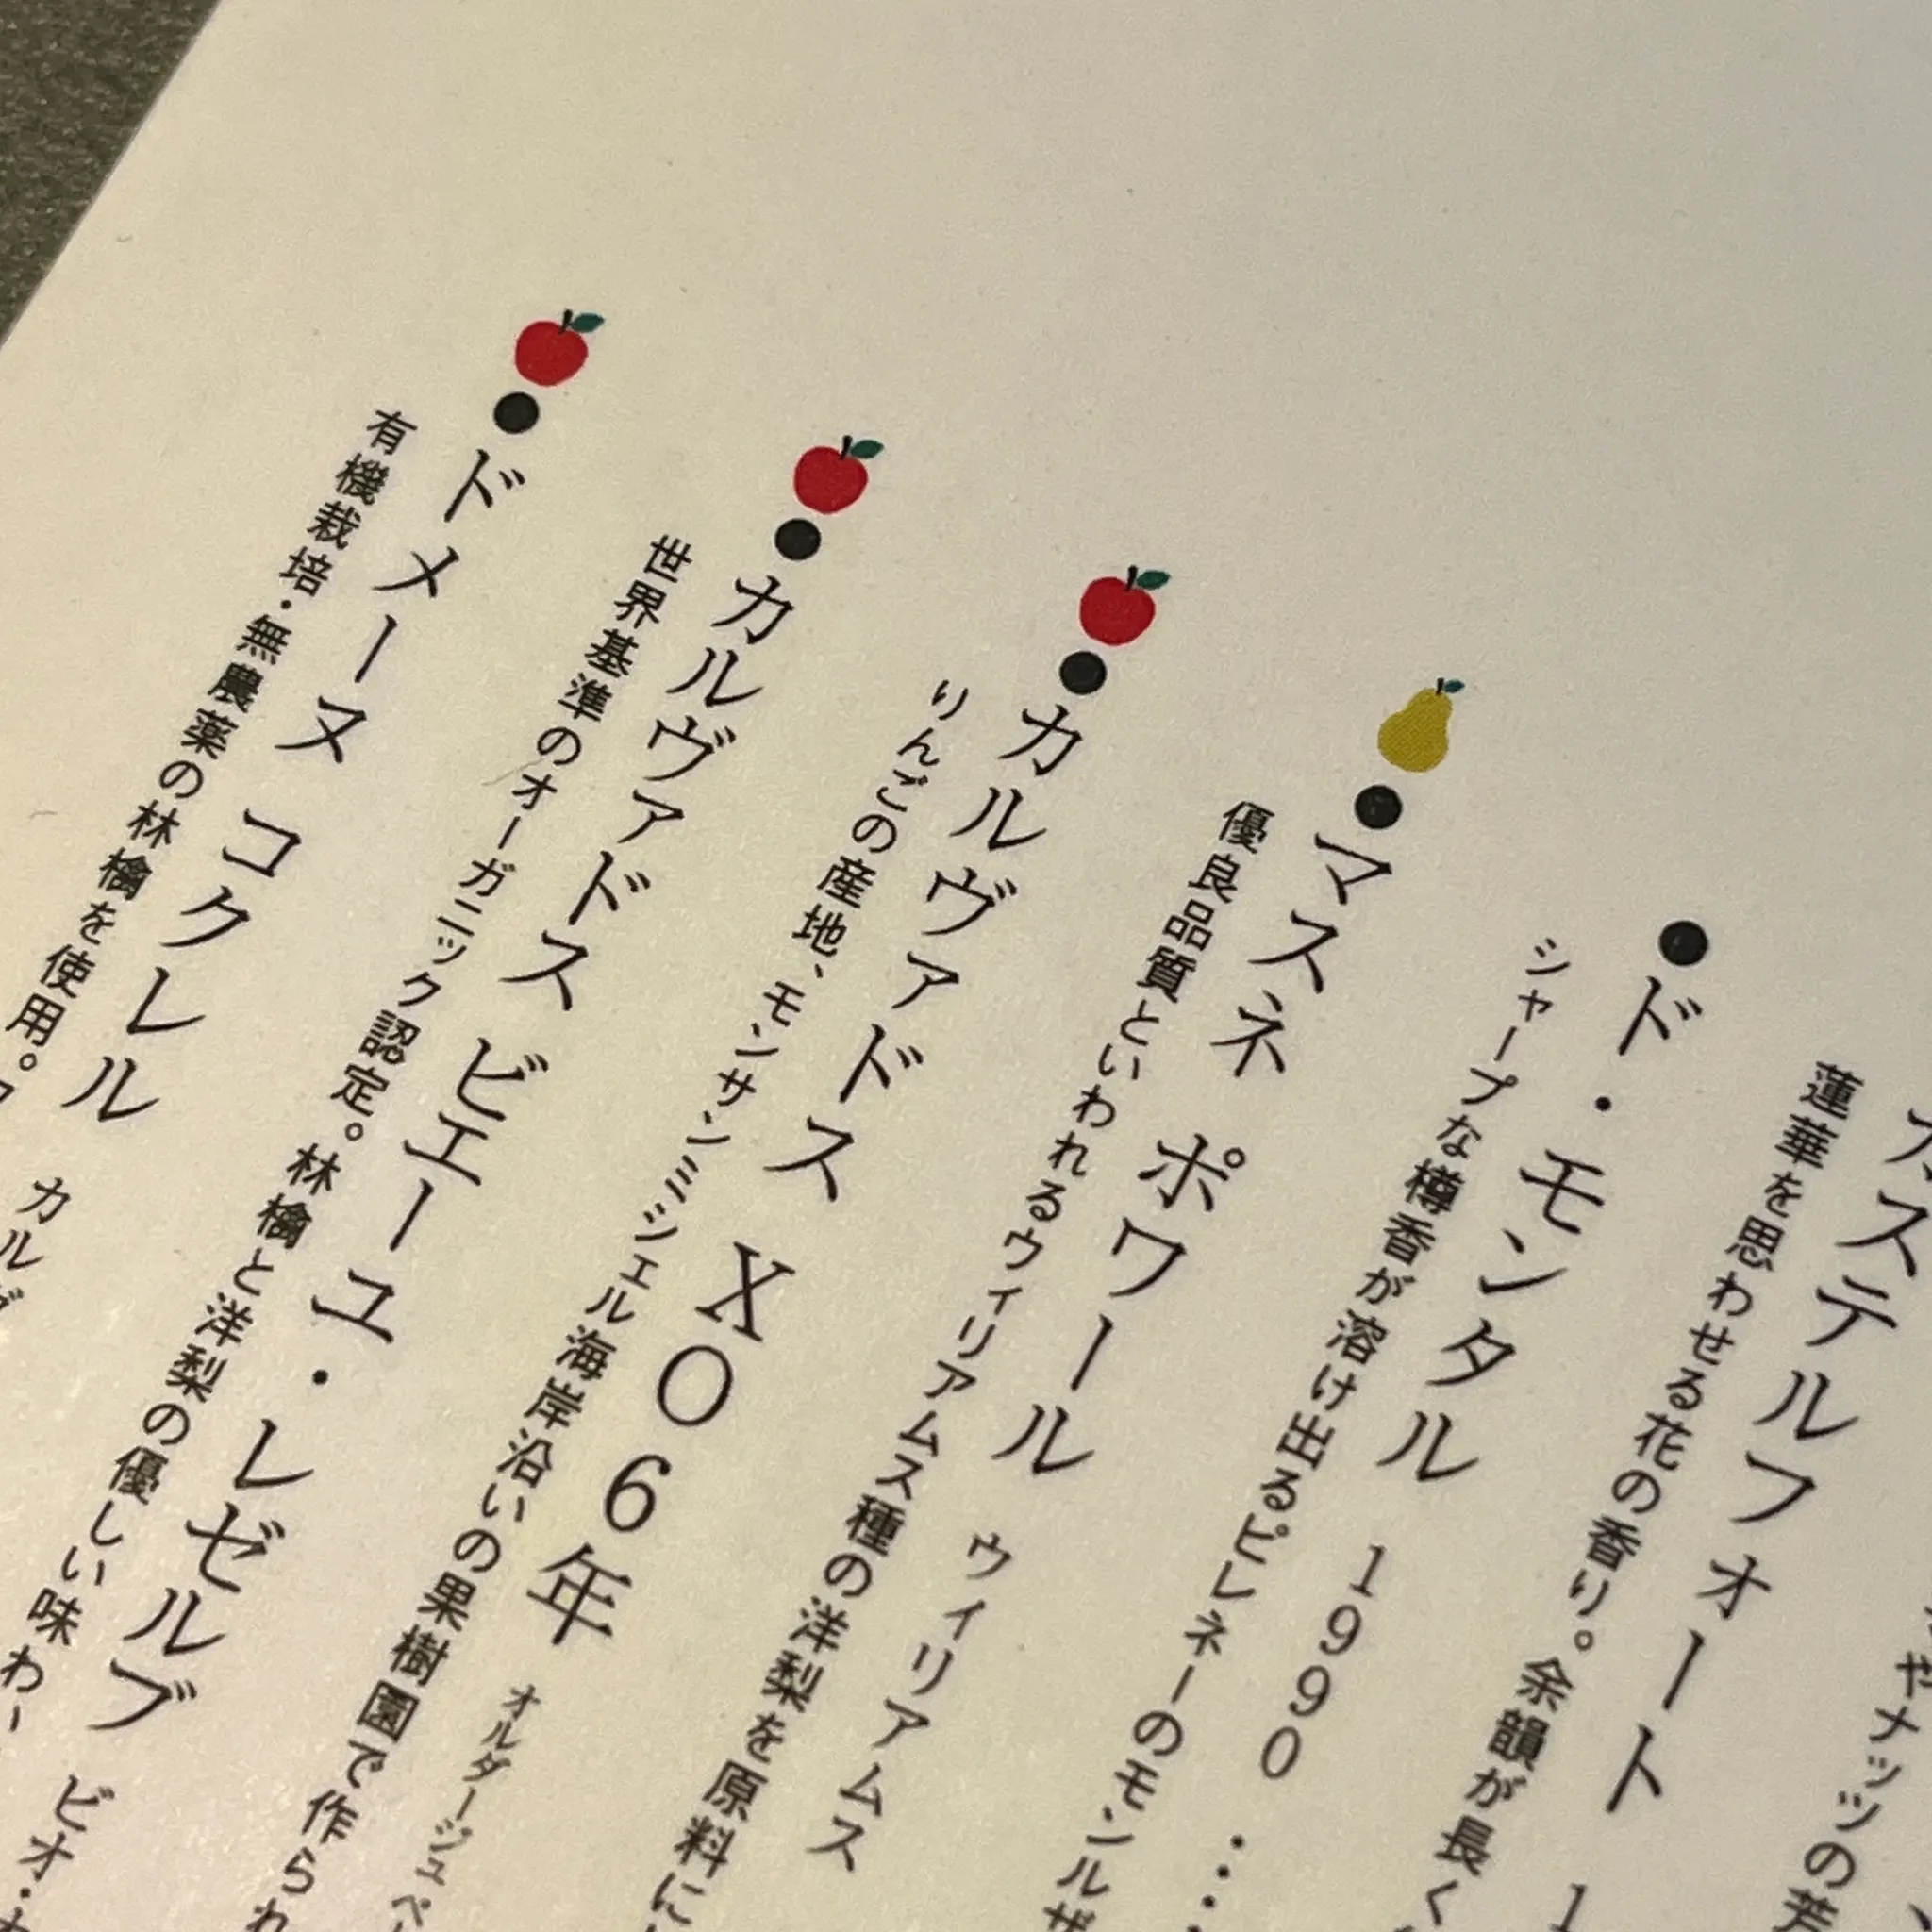 ヤナッツの芳
カステルフォート 1
蓮華を思わせる花の香り。余韻が長く
●ド・モンタル 1990 ‥‥
シャープな樽香が溶け出るピレネーのモンルザ
●マスネ ポワール ウィリアムス
優良品質といわれるウィリアムス種の洋梨を原料に
●カルヴァドス XO6年 オルダージュペ
りんごの産地、モンサンミシェル海岸沿いの果樹園で作られ
●カルヴァドス ビエーユ・レゼルブ ビオ・
世界基準のオーガニック認定。林檎と洋梨の優しい味わい
●ドメーヌ コクレル カルヴ
有機栽培・無農薬の林檎を使用。